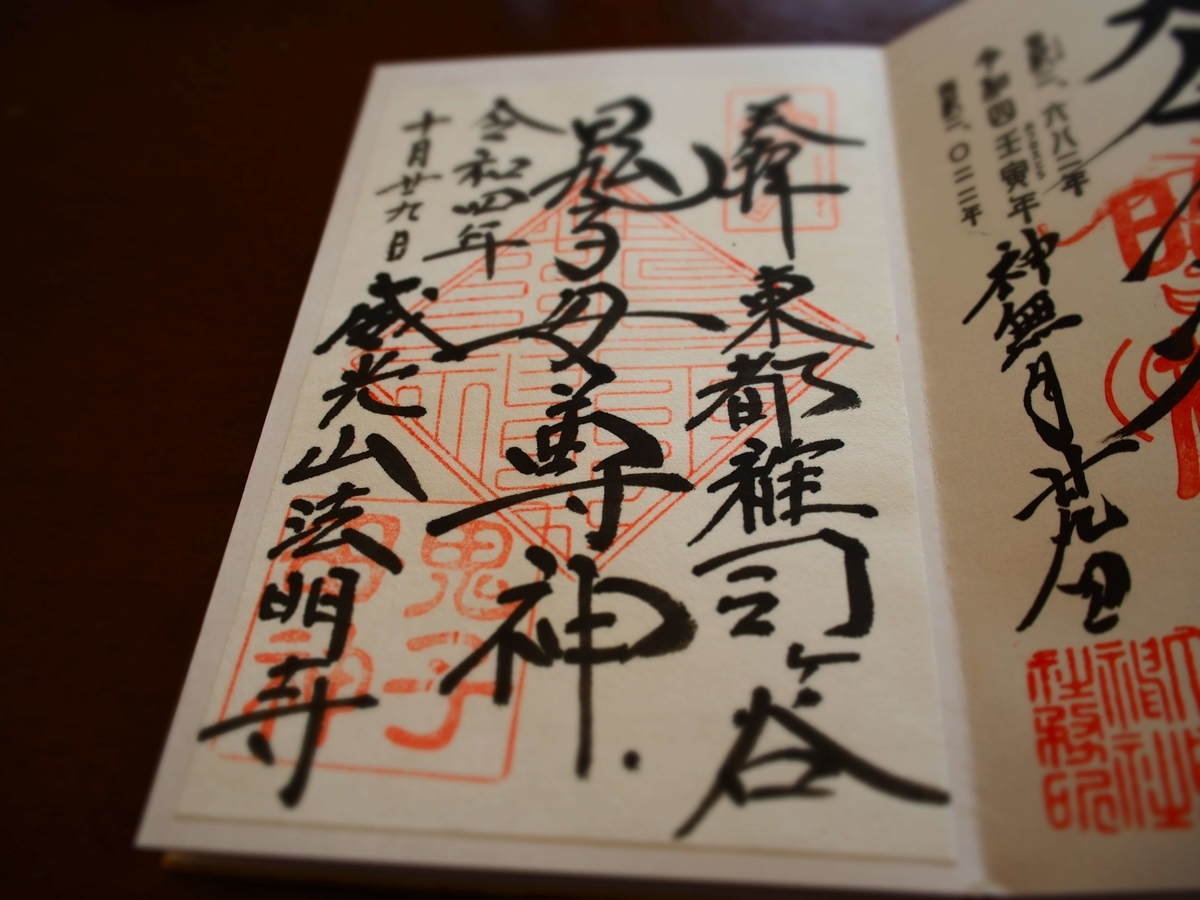 皇紀二、六八二年
令和四壬寅年
西暦二、〇二二年
神無月廿九日
奉拝
東都雑司ヶ谷
鬼子母尊神
令和四年
十月廿九日
威光山法明寺
鬼子
母神